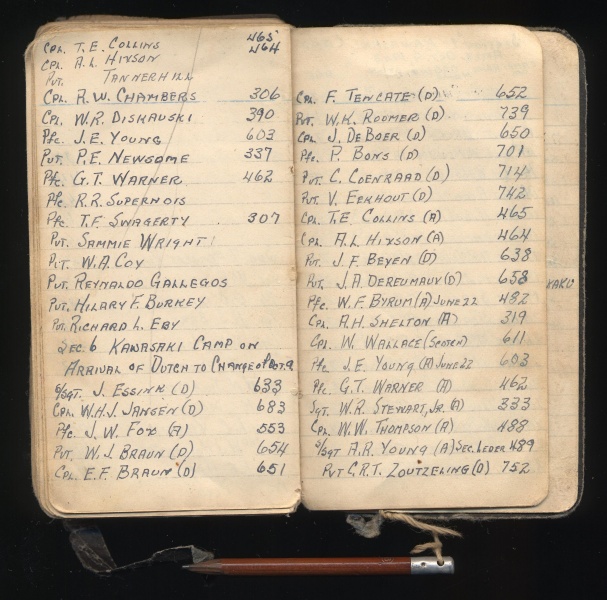 Cpl. T.E. Collins 465
Cpl. A.L. Hixson 464
Pvt. Tannerhill
Cpl. R.W. Chambers 306
Cpl. W.R. Diskauski 390
Pfc. J.E. Young 603
Pvt. P.E. Newsome 337
Pfc. G.T. Warner 462
Pfc. R.R. Supernois
Pfc. T.F. Swagerty 307
Pvt. Sammie Wright
Pvt. W.A. Coy
Pvt. Reynaldo Gallegos
Pvt. Hilary F. Burkey
Pvt. Richard L. Eby
Sec. 6 Kawasaki Camp on
Arrival of Dutch to Change of Oct. 9
S/Sgt. J. Essink (D) 633
Cpl. W.H.J. Jansen (D) 683
Pfc. J.W. Fox (A) 553
Pvt. W.J. Braun (D) 654
Cpl. E.F. Braun (D) 651
Cpl. F. Tencate (D) 652
Pvt. W.K. Roomer (D) 739
Cpl. J. DeBoer (D) 650
Pfc. P. Bons (D) 701
Pvt. C. Coenraad (D) 714
Pvt. V. Eekhout (D) 742
Cpl. T.E. Collins (A) 465
Cpl. A.L. Hixson (A) 464
Pvt. J.F. Beyen (D) 638
Pvt. J.A. Dereumaux (D) 658
Pfc. W.F. Byrum (A) June 22 482
Cpl. A.H. Shelton (A) 319
Cpl. W. Wallace (Scoten) 611
Pfc. J.E. Young (A) June 22 603
Pfc. G.T. Warner (A) 462
Sgt. W.R. Stewart, Jr. (A) 333
Cpl. W.W. Thompson (A) 488
S/Sgt A.R. Young (A) Sec. Leder 489
Pvt C.R.T. Zoutzeling (D) 752